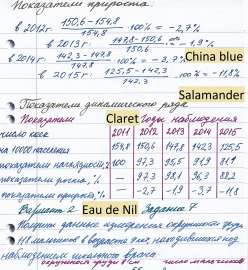 Показатели прироста
в 2012г 150,6-154,8 / 154,8 · 100% = -2,7%
в 2013г. 147,8-150,6 / 150,6 = -1,9%
в 2014г 142,3-147,8 / 147,8 · 100% = -3,7%
China blue
в 2015г 125,5-142,3 / 142,3 · 100% = -11,8%
Salamander
Показатели динамического ряда
Показатели Claret Годы наблюдения
2011 2012 2013 2014 2015
число
на 10000 населения 154,8 150,6 147,8 142,3 125,5
показатели наглядности, % 100 97,3 95,5 91,9 81,9
показатели роста, % — 97,3 98,1 96,3 88,2
показатели прироста, % — -2,7 -1,9 -3,7 -11,8
Вариант 2 Eau de Nil Задание 7
Получить данные измерения окружности груди
мальчиков в возрасте лет, находившихся под
наблюдением школьного врача
окружность груди в см число мальчиков